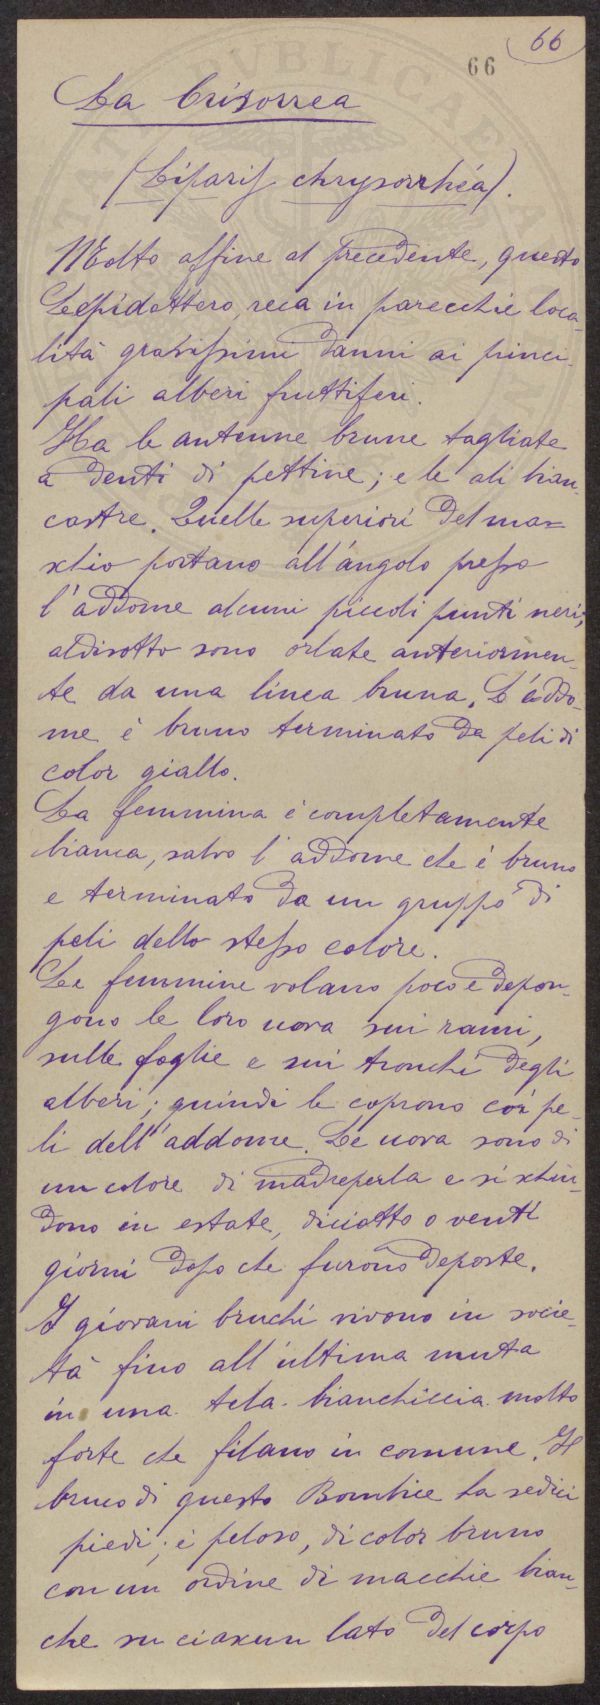 66
66
La Crisorrea
(Liparis chrysorrhéa).
Molto affine al precedente, questo
Lepidottero, reca in parecchie loca-
lità gravissimi danni ai princi-
pali alberi fruttiferi.
Ha le antenne brune tagliate
a denti di pettine; e le ali bian-
castre. Quelle superiori del ma=
schio portano all'angolo presso
l'addome alcuni piccoli punti neri;
aldisotto sono orlate anteriormen-
te da una linea bruna. L'addo-
me è bruno terminato da peli di
color giallo.
La femmina è completamente
bianca, salvo l'addome che è bruno
e terminato da un gruppo di
peli dello stesso colore.
Le femmine volano poco e depon-
gono le loro uova sui rami,
sulle foglie e sui tronchi degli
alberi; quindi le coprono coi pe-
li dell'addome. Le uova sono di
un colore di madreperla e si schiu-
dono in estate, diciotto o venti
giorni dopo che furono deposte.
I giovani bruchi vivono in socie-
tà fino all'ultima muta
in una tela bianchiccia molto
forte che filano in comune. Il
bruco di questo Bombice ha sedici
piedi; è peloso, di color bruno
con un ordine di macchie bian-
che su ciascun lato del corpo